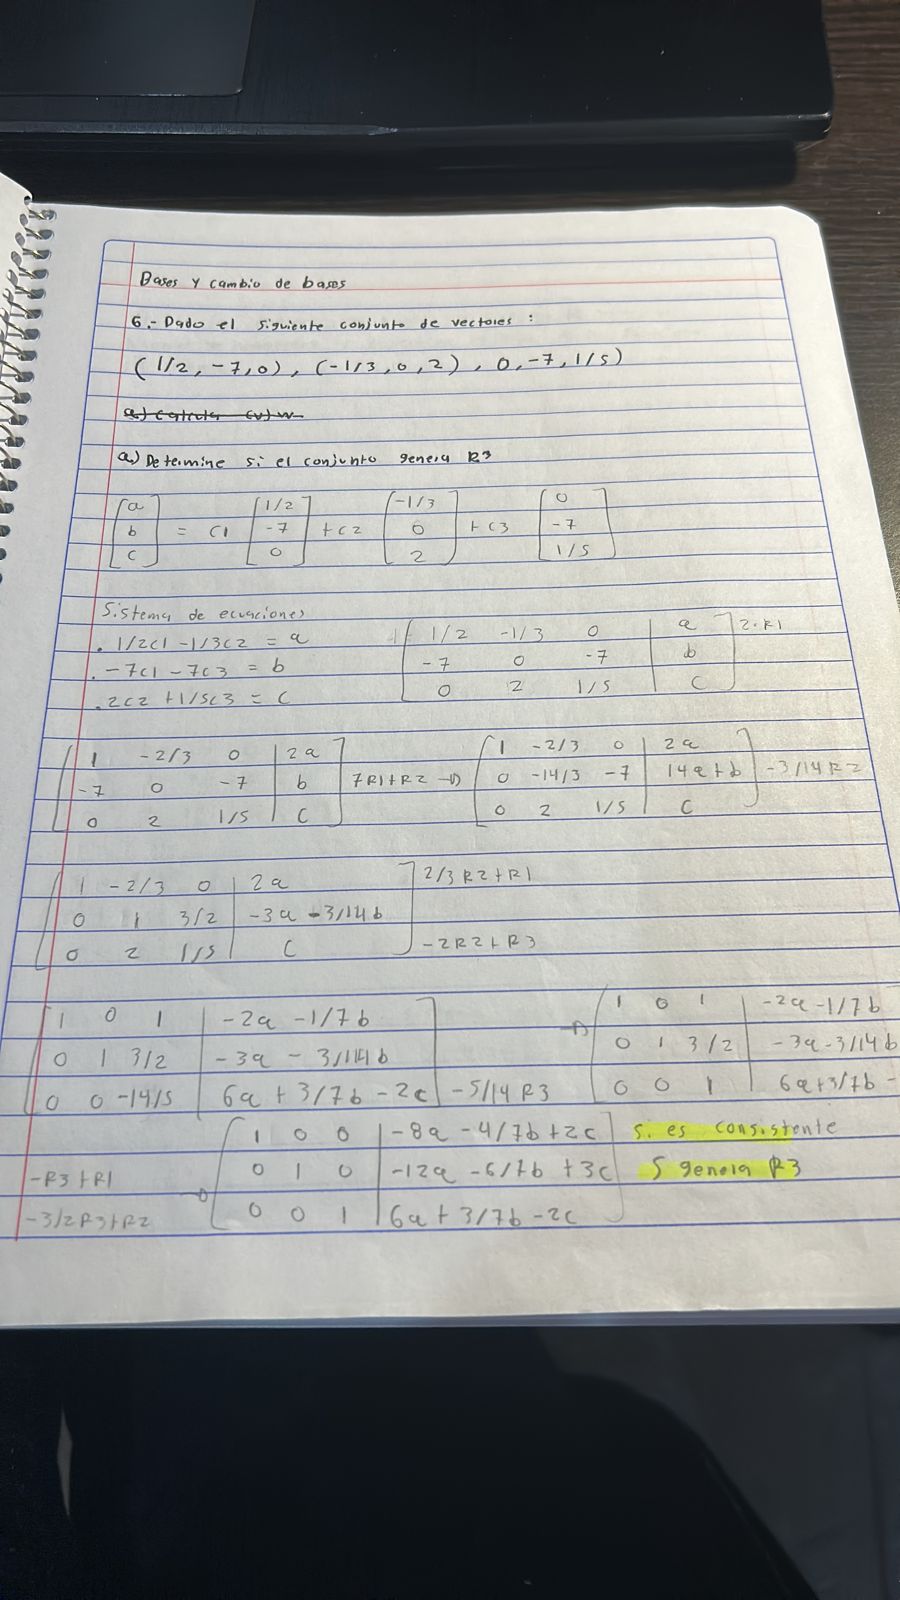 Bases y cambio de bases
6.- Dado el siguiente conjunto de vectores :
(1/2, -7, 0), (-1/3, 0, 2), 0, -7, 1/5)
a) Calcula (v) w
a) Determine si el conjunto genera R3
[a b c] = c1 [1/2 -7 0] + c2 [-1/3 0 2] + c3 [0 -7 1/5]
Sistema de ecuaciones
. 1/2c1 - 1/3c2 = a
. -7c1 - 7c3 = b
. 2c2 + 1/5c3 = c
[ 1/2 -1/3 0 | a ] 2·R1
-7 0 -7 | b
0 2 1/5 | c
[ 1 -2/3 0 | 2a ]
-7 0 -7 | b 7R1+R2 →
0 2 1/5 | c
[ 1 -2/3 0 | 2a ]
0 -14/3 -7 | 14a+b -3/14R2
0 2 1/5 | c
[ 1 -2/3 0 | 2a ] 2/3R2+R1
0 1 3/2 | -3a - 3/14b
0 2 1/5 | c -2R2+R3
[ 1 0 1 | -2a -1/7b ]
0 1 3/2 | -3a - 3/14b
0 0 -14/5 | 6a + 3/7b - 2c -5/14 R3
→ [ 1 0 1 | -2a -1/7b
0 1 3/2 | -3a -3/14b
0 0 1 | 6a+3/7b -
-R3+R1
-3/2R3+R2
→ [ 1 0 0 | -8a - 4/7b + 2c ]
0 1 0 | -12a - 6/7b + 3c
0 0 1 | 6a + 3/7b - 2c
Si es consistente
S genera R3